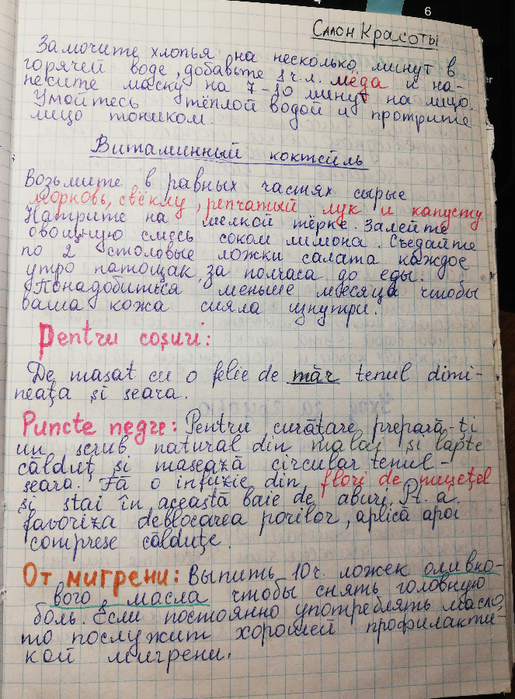 6
Салон Красоты
Замочите хлопья на несколько минут в
горячей воде, добавьте 1 ч.л. мёда и на-
несите маску на 7-10 минут на лицо.
Умойтесь тёплой водой и протрите
лицо тоником.
Витаминный коктейль
Возьмите в равных частях сырые
морковь, свёклу, репчатый лук и капусту
Натрите на мелкой тёрке. Залейте
овощную смесь соком лимона. Съедайте
по 2 столовые ложки салата каждое
утро натощак за полчаса до еды.
Понадобиться меньше месяца чтобы
ваша кожа сияла изнутри.
Pentru coșuri:
De masat cu o felie de măr tenul dimi-
neața și seara.
Puncte negre: Pentru curățare prepară-ți
un scrub natural din malai și lapte
călduț și masează circular tenul-
seara. Fă o infuzie din flori de mușețel
și stai în această baie de aburi. Pt. a
favoriza deblocarea porilor, aplică apoi
comprese călduțe.
От мигрени: Выпить 10 ч. ложек оливко-
вого масла чтобы снять головную
боль. Если постоянно употреблять масло,
то послужит хорошей профилакти-
кой мигрени.